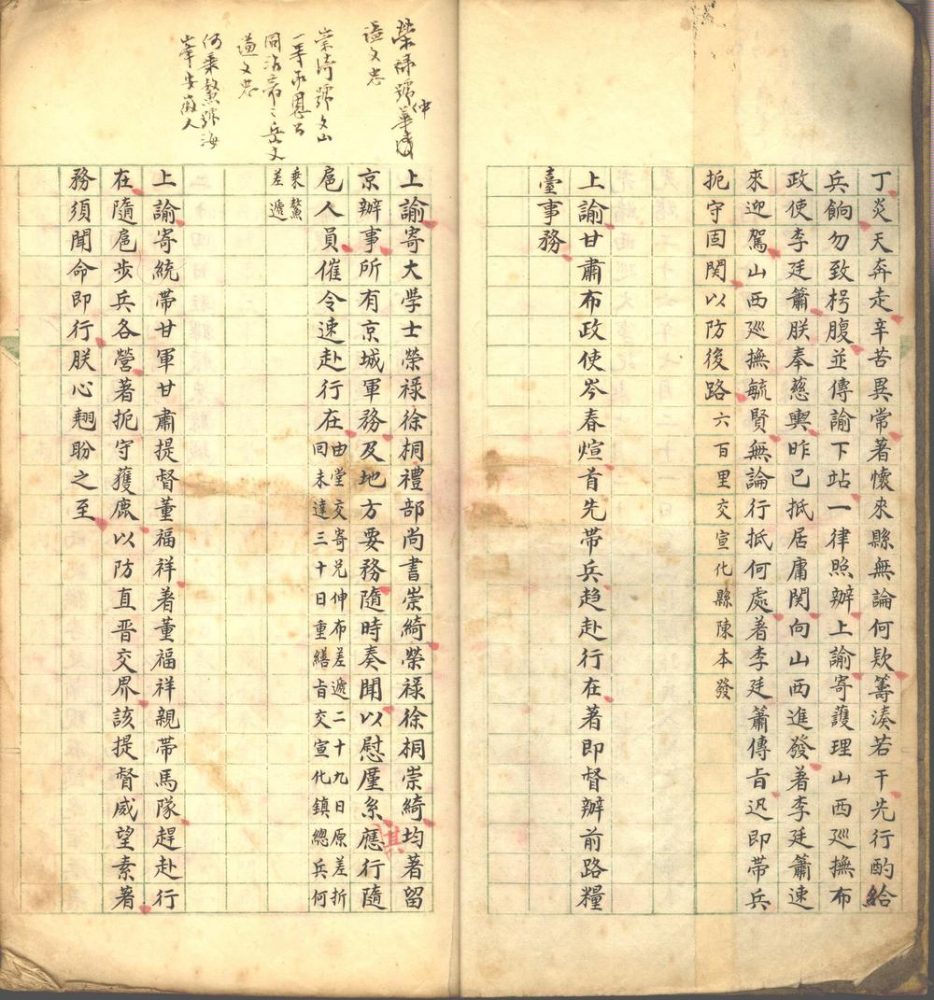 丁炎天奔走辛苦異常著懷來縣無論何欵籌湊若干先行酌給
兵餉勿致枵腹並傳諭下站一律照辦上諭寄護理山西廵撫布
政使李廷簫朕奉慈輿昨已抵居庸関向山西進發著李廷簫速
來迎駕山西廵撫毓賢無論行抵何處著李廷簫傳旨迅即帶兵
扼守固関以防後路六百里交宣化縣陳本發
上諭甘肅布政使岑春煊首先帶兵趋赴行在著即督辦前路糧
臺事務
榮祿號仲華
諡文忠
崇綺號文山
一等承恩公
同治帝之岳丈
諡文忠
何乘鰲號海
峯安徽人
上諭寄大學士榮祿徐桐禮部尚書崇綺榮祿徐桐崇綺均著留
京辦事所有京城軍務及地方要務隨時奏聞以慰廑系應行隨
其
扈人員催令速赴行在由堂交寄兑伸布差遞二十九日原差折
回未達三十日重繕旨交宣化鎮總兵何
乘鰲
差遞
上諭寄統帶甘軍甘肅提督董福祥著董福祥親帶馬隊趕赴行
在隨扈步兵各營著扼守獲鹿以防直晋交界該提督威望素著
務須聞命即行朕心翹盼之至